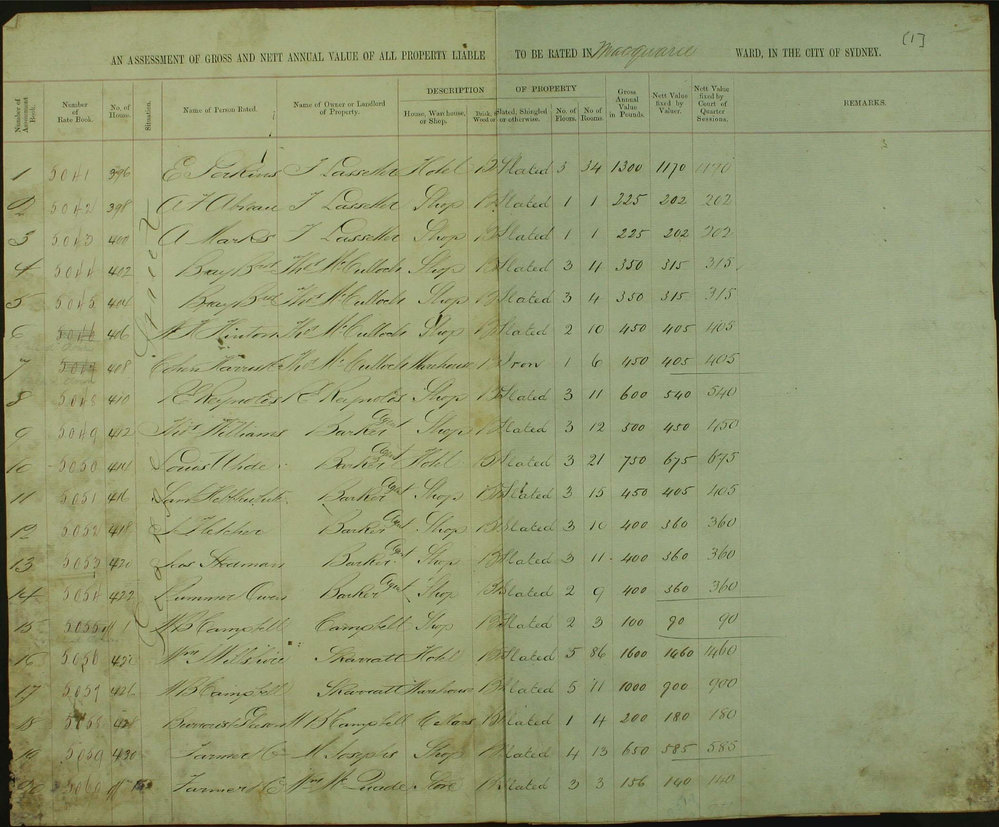 [1]
AN ASSESSMENT OF GROSS AND NETT ANNUAL VALUE OF ALL PROPERTY LIABLE TO BE RATED IN Macquarie WARD, IN THE CITY OF SYDNEY.
Number of Assessment Book. Number of Rate Book. No. of House. Situation. Name of Person Rated. Name of Owner or Landlord of Property. DESCRIPTION OF PROPERTY House, Warehouse, or Shop. Brick, Wood or Slated, Shingled or otherwise. No. of Floors. No of Rooms. Gross Annual Value in Pounds. Nett Value fixed by Valuer. Nett Value fixed by Court of Quarter Sessions. REMARKS.
George Street
1 5041 396 E Perkins F Lassetter Hotel B Slated 3 34 1300 1170 1170
2 5042 398 F Lassetter Shop B Slated 1 1 225 202 202
3 5043 400 A Marks F Lassetter Shop B Slated 1 1 225 202 202
4 5044 402 Bray Bros Thos McCulloch Shop B Slated 3 4 350 315 315
5 5045 404 Bray Bros Thos McCulloch Shop B Slated 3 4 350 315 315
6 5046 406 Hinton Thos McCulloch Shop B Slated 2 10 450 405 405
7 5047 408 Thos McCulloch Warehouse B Iron 1 6 450 405 405
8 5048 410 E Reynolds E Reynolds Shop B Slated 3 11 600 540 540
9 5049 412 Thos Williams Barker Agent Shop B Slated 3 12 500 450 450
10 5050 414 Barker Agent Hotel B Slated 3 21 750 675 675
11 5051 416 Sam Barker Agent Shop B Slated 3 15 450 405 405
12 5052 418 J Fletcher Barker Agent Shop B Slated 3 10 400 360 360
13 5053 420 Barker Agent Shop B Slated 3 11 400 360 360
14 5054 422 Owen Barker Agent Shop B Slated 2 9 400 360 360
15 5055 W B Campbell Campbell Shop B Slated 2 3 100 90 90
16 5056 Wm Skarratt Hotel B Slated 5 86 1600 1460 1460
17 5057 426 W B Campbell Skarratt Warehouse B Slated 5 11 1000 900 900
18 5058 428 W B Campbell Cellars B Slated 1 4 200 180 180
19 5059 430 Farmer & Co Josephs Shop B Slated 4 13 650 585 585
20 5060 Farmer & Co Wm McQuade Store B Slated 3 3 156 140 140